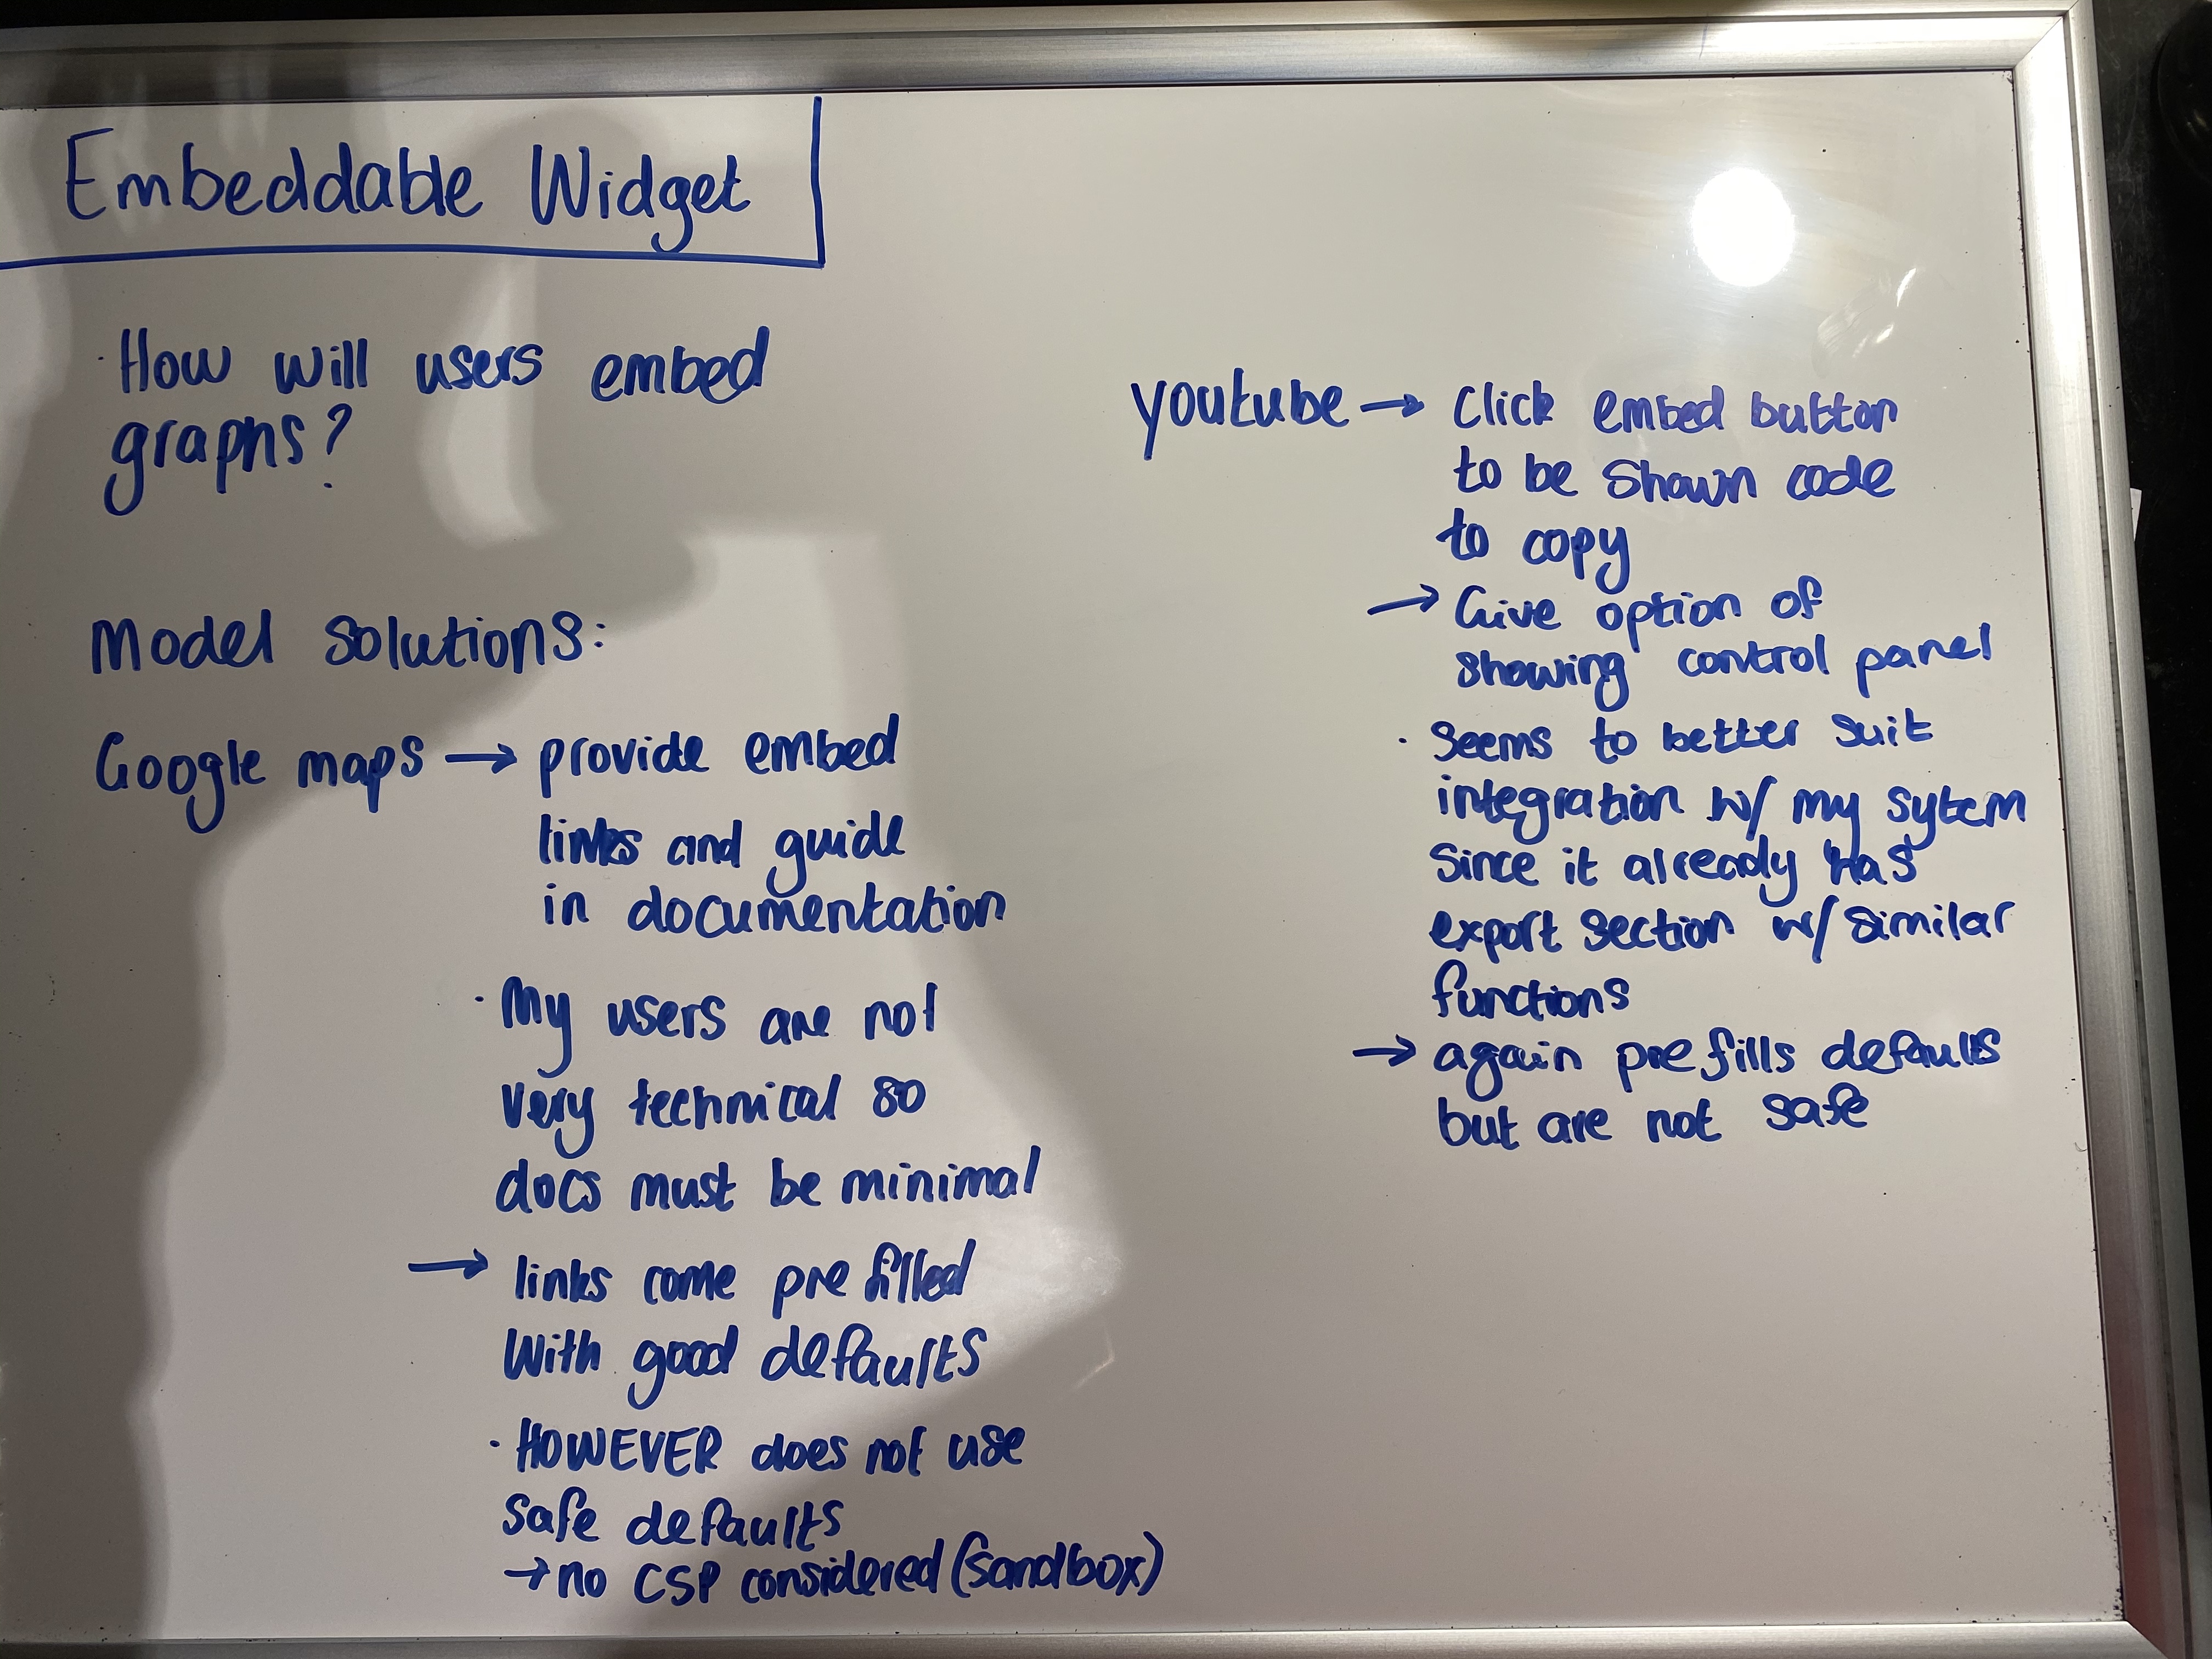 Embeddable Widget
· How will users embed
graphs?
Model solutions:
Google maps → provide embed
links and guide
in documentation
· My users are not
very technical so
docs must be minimal
→ links come pre filled
With good defaults
· HOWEVER does not use
safe defaults
→ no CSP considered (sandbox)
youtube → Click embed button
to be shown code
to copy
→ Give option of
showing control panel
· seems to better suit
integration w/ my sytem
since it already has
export section w/ similar
functions
→ again pre fills defaults
but are not safe